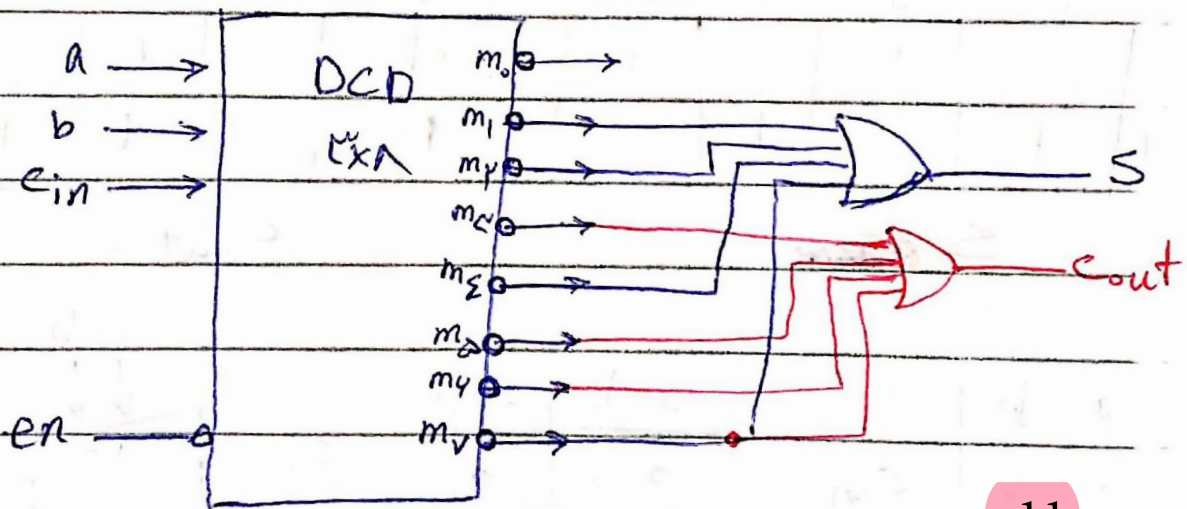 a
b
cin
en
DCD
۳×۸
m۰
m۱
m۲
m۳
m۴
m۵
m۶
m۷
S
Cout